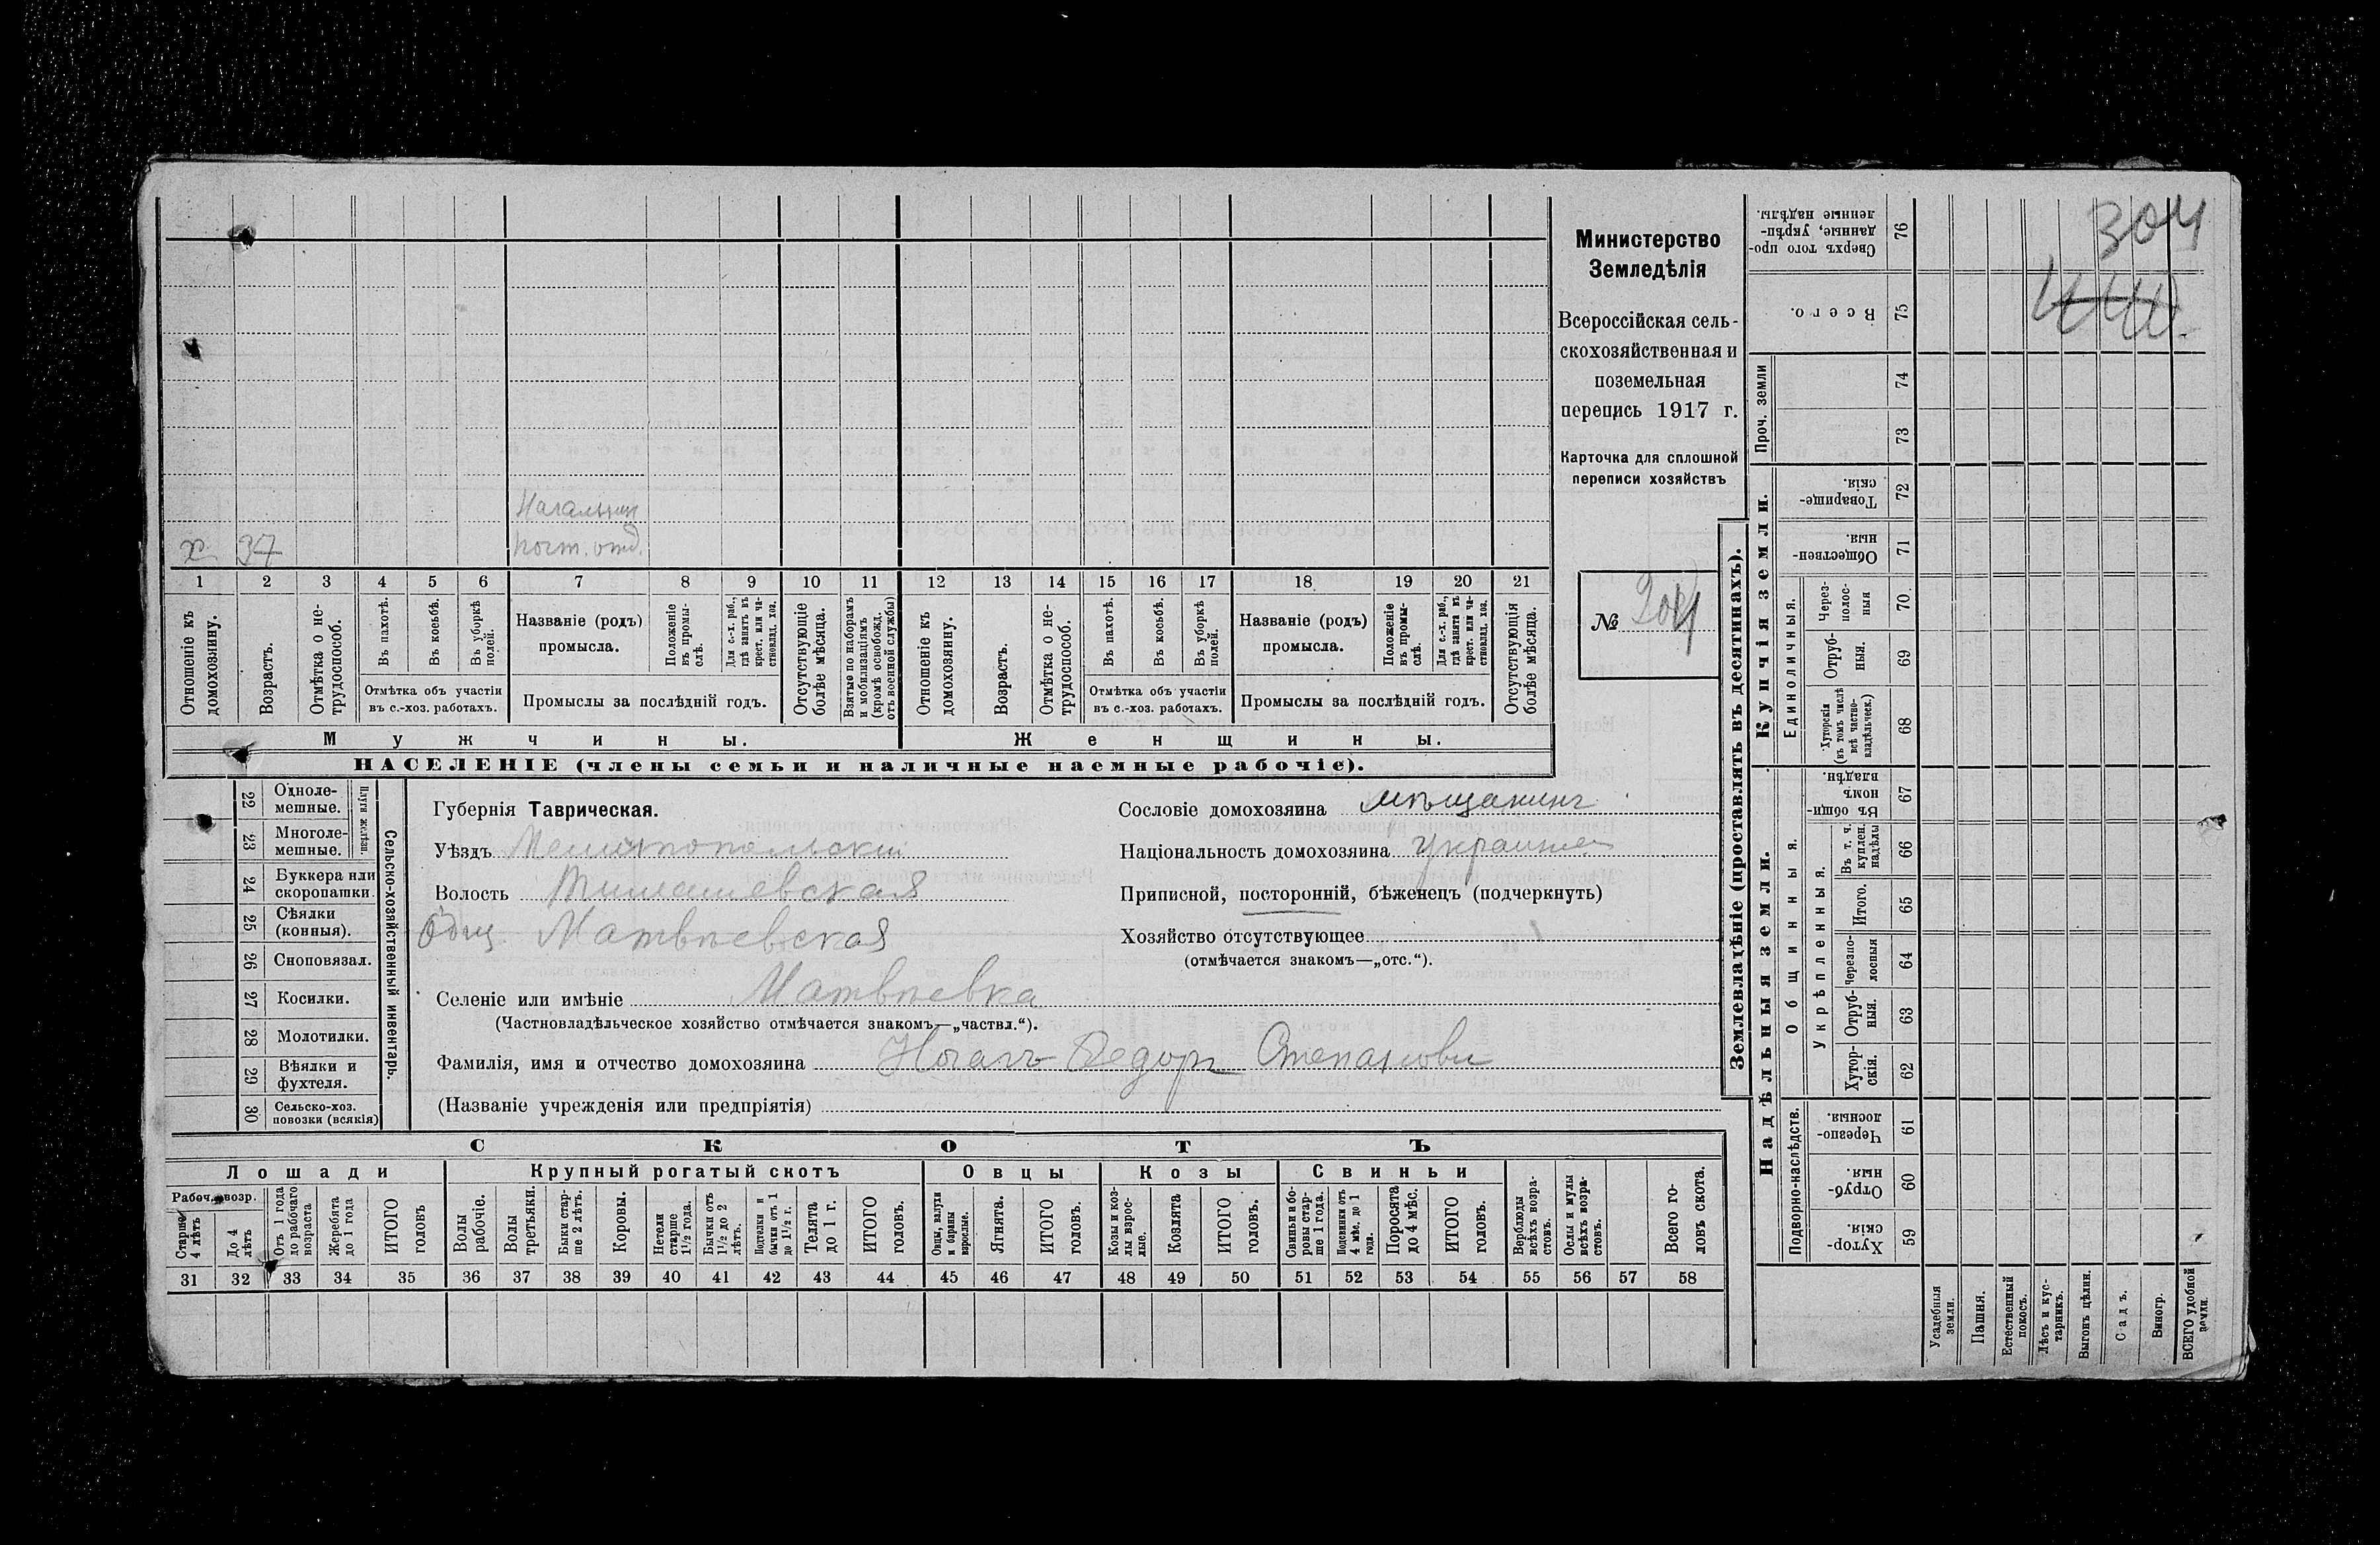 304
Министерство
Земледѣлія
Всероссійская сель-
скохозяйственная и
поземельная
перепись 1917 г.
Карточка для сплошной
переписи хозяйствъ
№ 204
Начальник
почт. отд.
х 37
1 2 3 4 5 6 7 8 9 10 11 12 13 14 15 16 17 18 19 20 21
Отношеніе къ домохозяину.
Возрастъ.
Отмѣтка о не-трудоспособ.
Въ пахотѣ.
Въ косьбѣ.
Въ уборкѣ полей.
Отмѣтка объ участіи
въ с.-хоз. работахъ.
Названіе (родъ)
промысла.
Положеніе въ промы-слѣ.
Для с.-х. раб., гдѣ занятъ въ крест. или ча-стновлад. хоз.
Промыслы за послѣдній годъ.
Отсутствующіе болѣе мѣсяца.
Взятые по наборамъ и мобилизаціямъ (кромѣ освобожд. отъ военной службы)
Отношеніе къ домохозяину.
Возрастъ.
Отмѣтка о не-трудоспособ.
Въ пахотѣ.
Въ косьбѣ.
Въ уборкѣ полей.
Отмѣтка объ участіи
въ с.-хоз. работахъ.
Названіе (родъ)
промысла.
Положеніе въ промы-слѣ.
Для с.-х. раб., гдѣ занята въ крест. или ча-стновлад. хоз.
Промыслы за послѣдній годъ.
Отсутствующія болѣе мѣсяца.
Мужчины. Женщины.
НАСЕЛЕНІЕ (члены семьи и наличные наемные рабочіе).
22 Одноле-мешные.
23 Многоле-мешные.
Плуги желѣзн.
24 Буккера или скоропашки.
25 Сѣялки (конныя).
26 Сноповязал.
27 Косилки.
28 Молотилки.
29 Вѣялки и фухтеля.
30 Сельско-хоз. повозки (всякія)
Сельско-хозяйственный инвентарь.
Губернія Таврическая.
Уѣздъ Мелитопольскій
Волость Тимашевская
Общ. Матвѣевская
Селеніе или имѣніе Матвѣевка
(Частновладѣльческое хозяйство отмѣчается знакомъ—„частвл.“).
Фамилія, имя и отчество домохозяина Ногачъ Федоръ Степанови
(Названіе учрежденія или предпріятія)
Сословіе домохозяина мѣщанинъ
Національность домохозяина украинец
Приписной, посторонній, бѣженецъ (подчеркнуть)
Хозяйство отсутствующее
(отмѣчается знакомъ—„отс.“).
СКОТЪ
Лошади Крупный рогатый скотъ Овцы Козы Свиньи
Рабоч. возр.
Старше 4 лѣтъ
До 4 лѣтъ
Отъ 1 года до рабочаго возраста
Жеребята до 1 года
ИТОГО головъ
Волы рабочіе.
Волы третьяки.
Быки стар-ше 2 лѣтъ.
Коровы.
Нетели старше 1½ года.
Бычки отъ 1½ до 2 лѣтъ.
Подтелки и бычки отъ 1 до 1½ г.
Телята до 1 г.
ИТОГО головъ.
Овцы, валухи и бараны взрослые.
Ягнята.
ИТОГО головъ.
Козы и коз-лы взрос-лые.
Козлята
ИТОГО головъ.
Свиньи и бо-ровы стар-ше 1 года.
Подсвинки отъ 4 мѣс. до 1 года.
Поросята до 4 мѣс.
ИТОГО головъ.
Верблюды всѣхъ возра-стовъ.
Ослы и мулы всѣхъ возра-стовъ.
Всего го-ловъ скота.
31 32 33 34 35 36 37 38 39 40 41 42 43 44 45 46 47 48 49 50 51 52 53 54 55 56 57 58
Землевладѣніе (проставлять въ десятинахъ).
Купчія земли.
Надѣльныя земли.
Сверхъ того про-данные, укрѣп-ленные надѣлы. 76
Всего. 75
Проч. земли 74
73
Товарище-скія. 72
Обществен-ныя. 71
Единоличныя.
Через-полос-ныя 70
Отруб-ныя. 69
Хуторскія (въ томъ числѣ всѣ частно-владѣльческ.) 68
Общинныя.
Въ общин-номъ владѣн. 67
Укрѣпленныя.
Въ т. ч. куплен. надѣлы 66
Итого. 65
Черезпо-лосныя 64
Отруб-ныя. 63
Хутор-скія. 62
Подворно-наслѣдств.
Черезпо-лосныя. 61
Отруб-ныя. 60
Хутор-скія. 59
Усадебныя земли.
Пашня.
Естественный покосъ.
Лѣсъ и кус-тарникъ.
Выгонъ цѣлин.
Садъ.
Виногр.
ВСЕГО удобной земли.